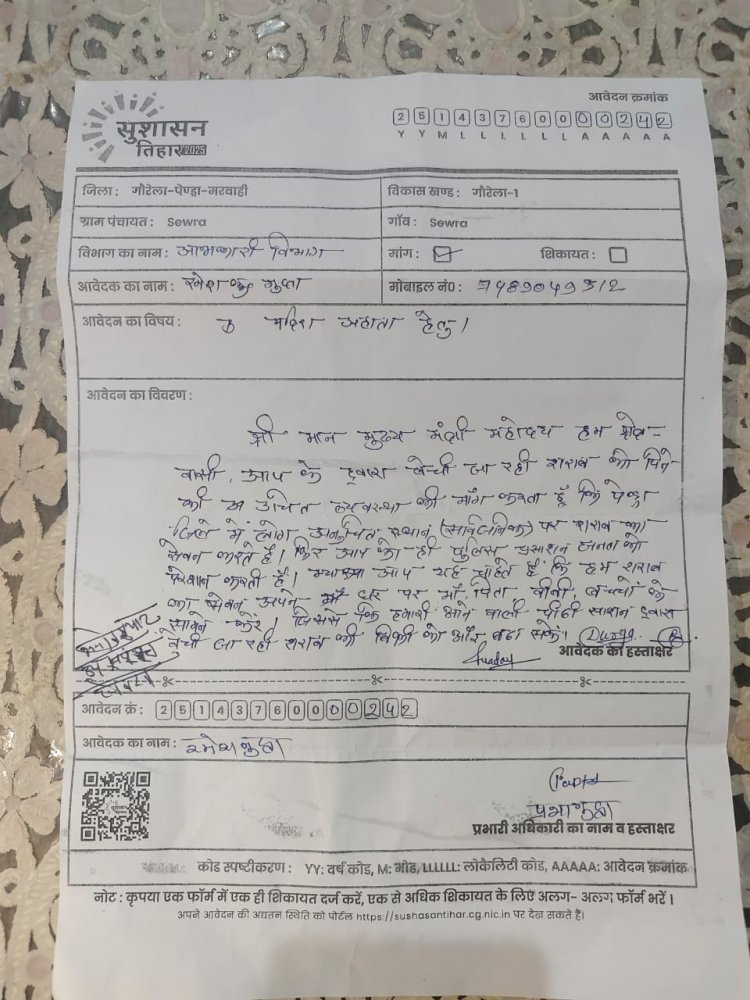 सुशासन
तिहार 2025
आवेदन क्रमांक
2 5 1 4 3 7 6 0 0 0 0 2 4 2
Y Y M L L L L L L A A A A A
जिला : गौरेला-पेण्ड्रा-मरवाही
विकास खण्ड : गौरेला-1
ग्राम पंचायत : Sewra
गाँव : Sewra
विभाग का नाम : आबकारी विभाग
मांग : शिकायत :
आवेदक का नाम : रमेश गुप्ता
मोबाइल नं० :
आवेदन का विषय : मदिरा अहाता हेतु।
आवेदन का विवरण :
श्री मान मुख्य मंत्री महोदय हम क्षेत्र-
वासी, आप के द्वारा बेची जा रही शराब को पिने
की उचित व्यवस्था की माँग करता हूँ कि पेण्ड्रा
जिले में लोग अनुचित स्थान (सार्वजनिक) पर शराब का
सेवन करते है। फिर आप की ही पुलिस प्रसाशन जनता को
परेशान करती है। क्या आप यह चाहते है कि हम शराब
का सेवन अपने घर पर माँ, पिता बीबी, बच्चों के
सामने करे। जिससे कि हमारी आने वाली पीढी शासन द्वारा
बेची जा रही शराब की बिक्री को और बढा सके।
आवेदक का हस्ताक्षर
आवेदन क्रं : 2 5 1 4 3 7 6 0 0 0 0 2 4 2
आवेदक का नाम : रमेश गुप्ता
प्रभारी अधिकारी का नाम व हस्ताक्षर
कोड स्पष्टीकरण : YY: वर्ष कोड, M: मोड, LLLLLL: लोकैलिटी कोड, AAAAA: आवेदन क्रमांक
नोट : कृपया एक फॉर्म में एक ही शिकायत दर्ज करें, एक से अधिक शिकायत के लिए अलग- अलग फॉर्म भरें ।
अपने आवेदन की अद्यतन स्थिति को पोर्टल https://sushasantihar.cg.nic.in पर देख सकते हैं।